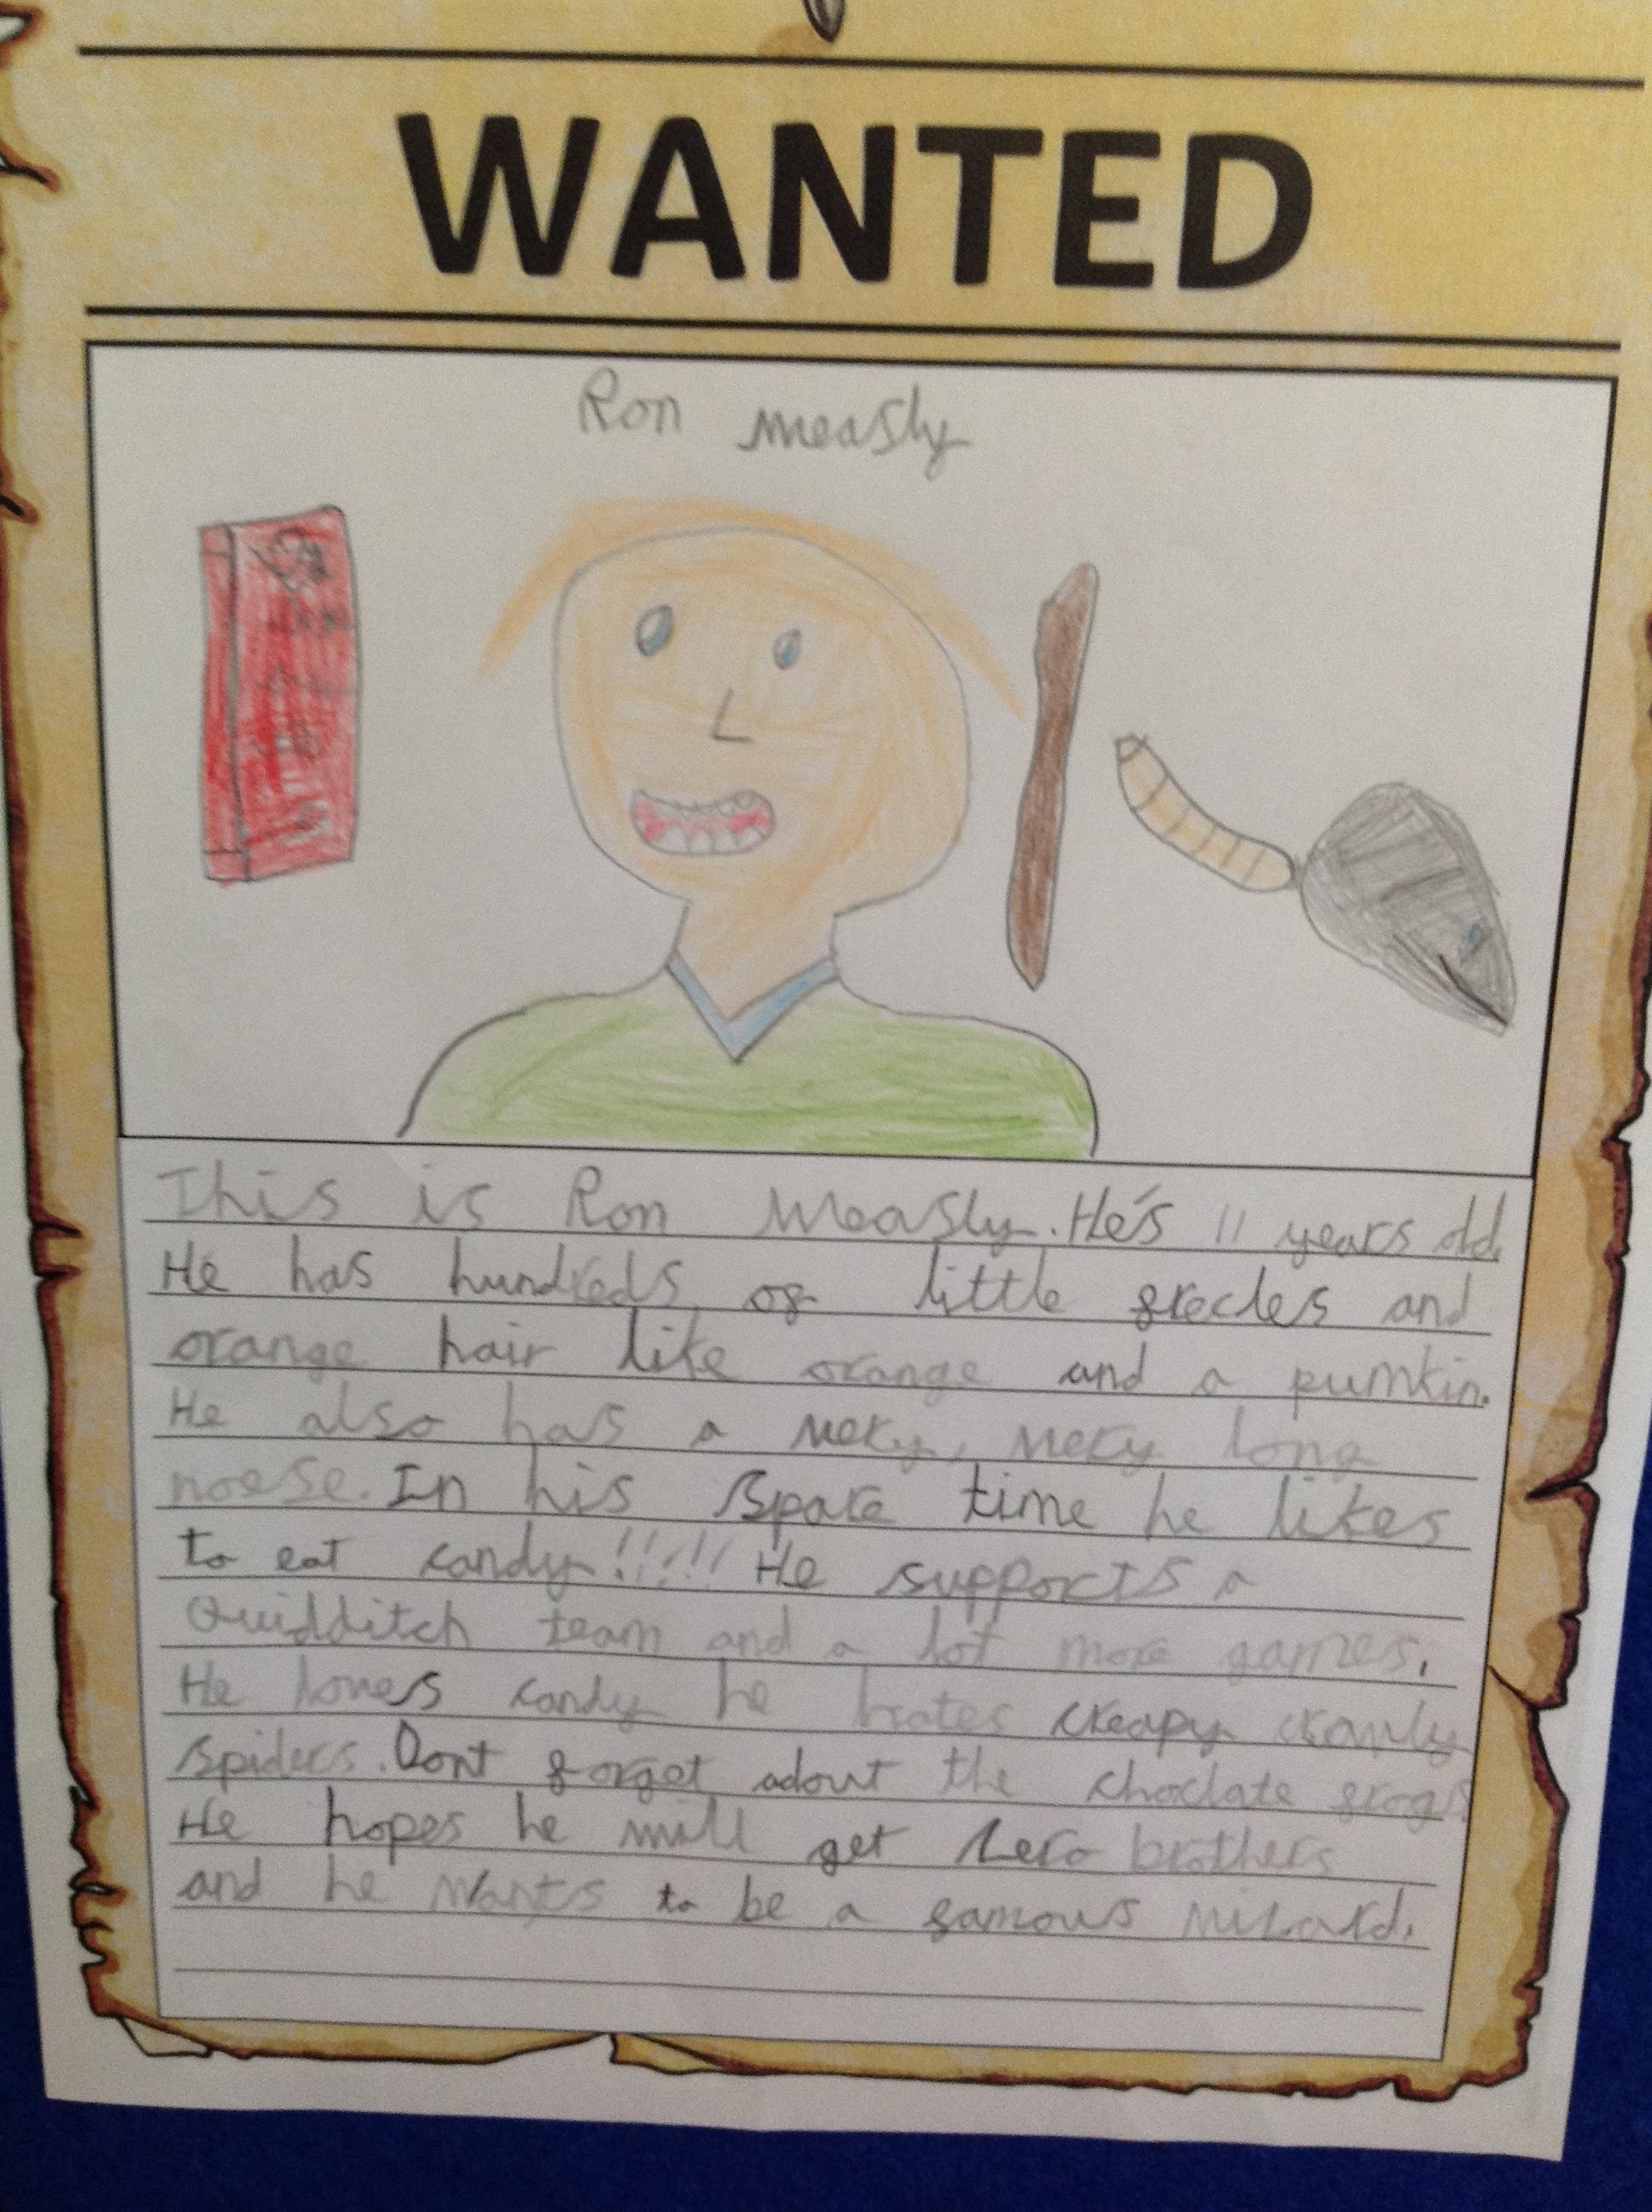 WANTED
Ron Weasly
This is Ron Weasly. He's 11 years old.
He has hundreds of little frecles and
orange hair like orange and a pumkin.
He also has a very, very long
noese. In his spare time he likes
to eat candy!!!!! He supports a
Quidditch team and a lot more games.
He loves candy he hates creapy crawly
spiders. Dont forget adout the choclate frogs
He hopes he will get zero brothers
and he wants to be a famous wizard.